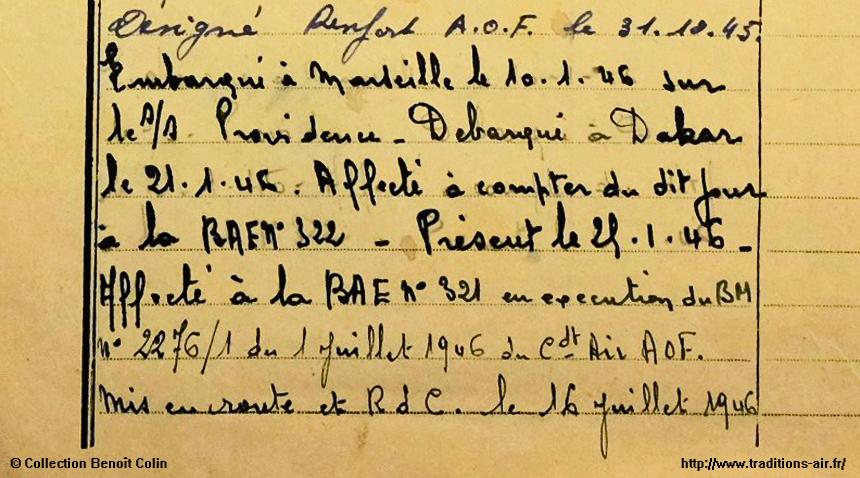 Désigné Renfort A.O.F. le 31.12.45.
Embarqué à Marseille le 10.1.46 sur
le S/S Providence - Debarqué à Dakar
le 21.1.46. Affecté à compter du dit jour
à la BAE N° 322 - Présent le 25.1.46 -
Affecté à la BAE N° 321 en execution du BM
N° 2276/1 du 1 Juillet 1946 du Cdt Air AOF.
Mis en route et R d C. le 16 juillet 1946
© Collection Benoît Colin
http://www.traditions-air.fr/